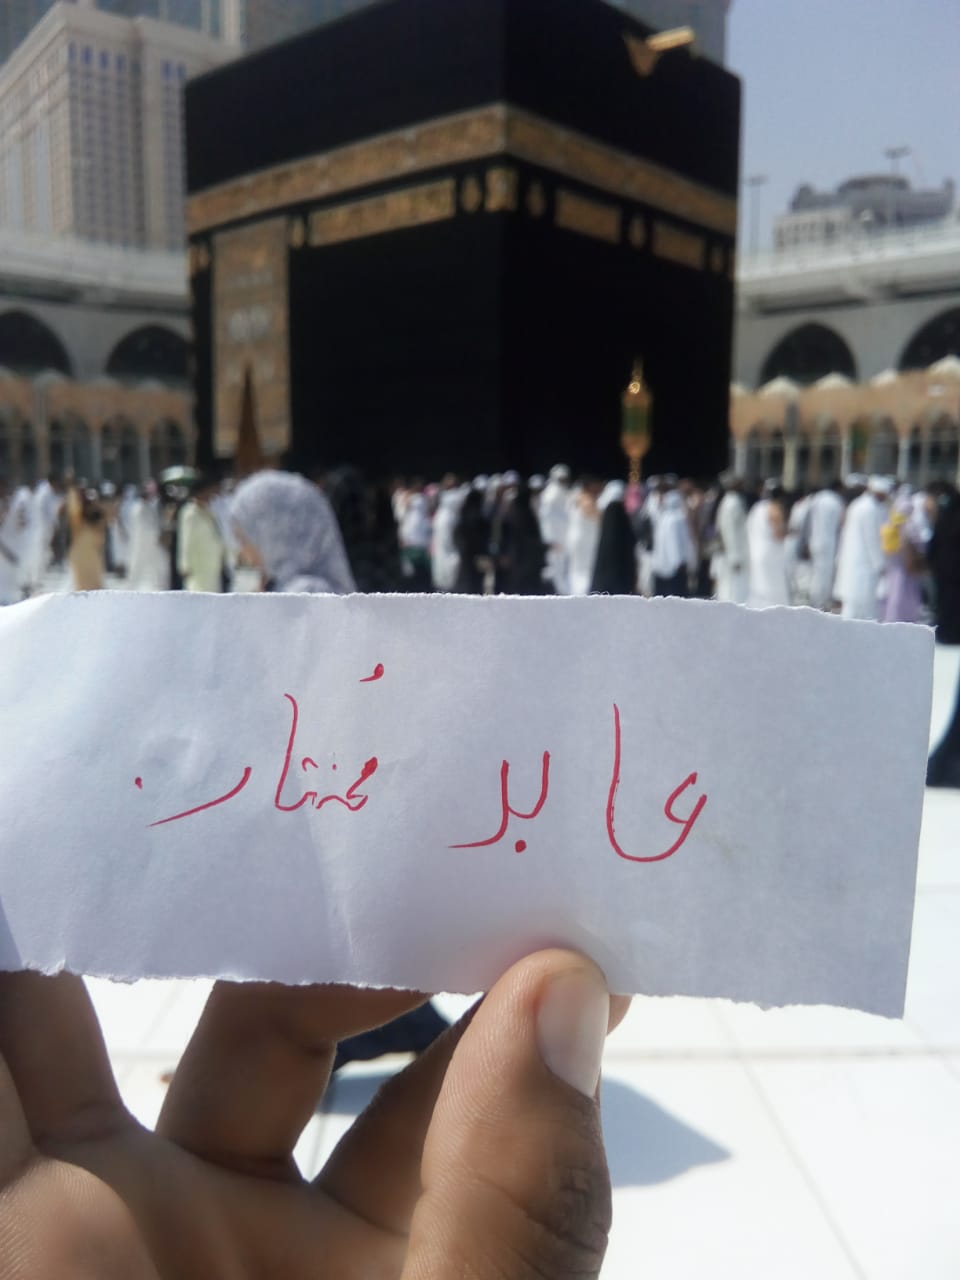 عابد مُختار.